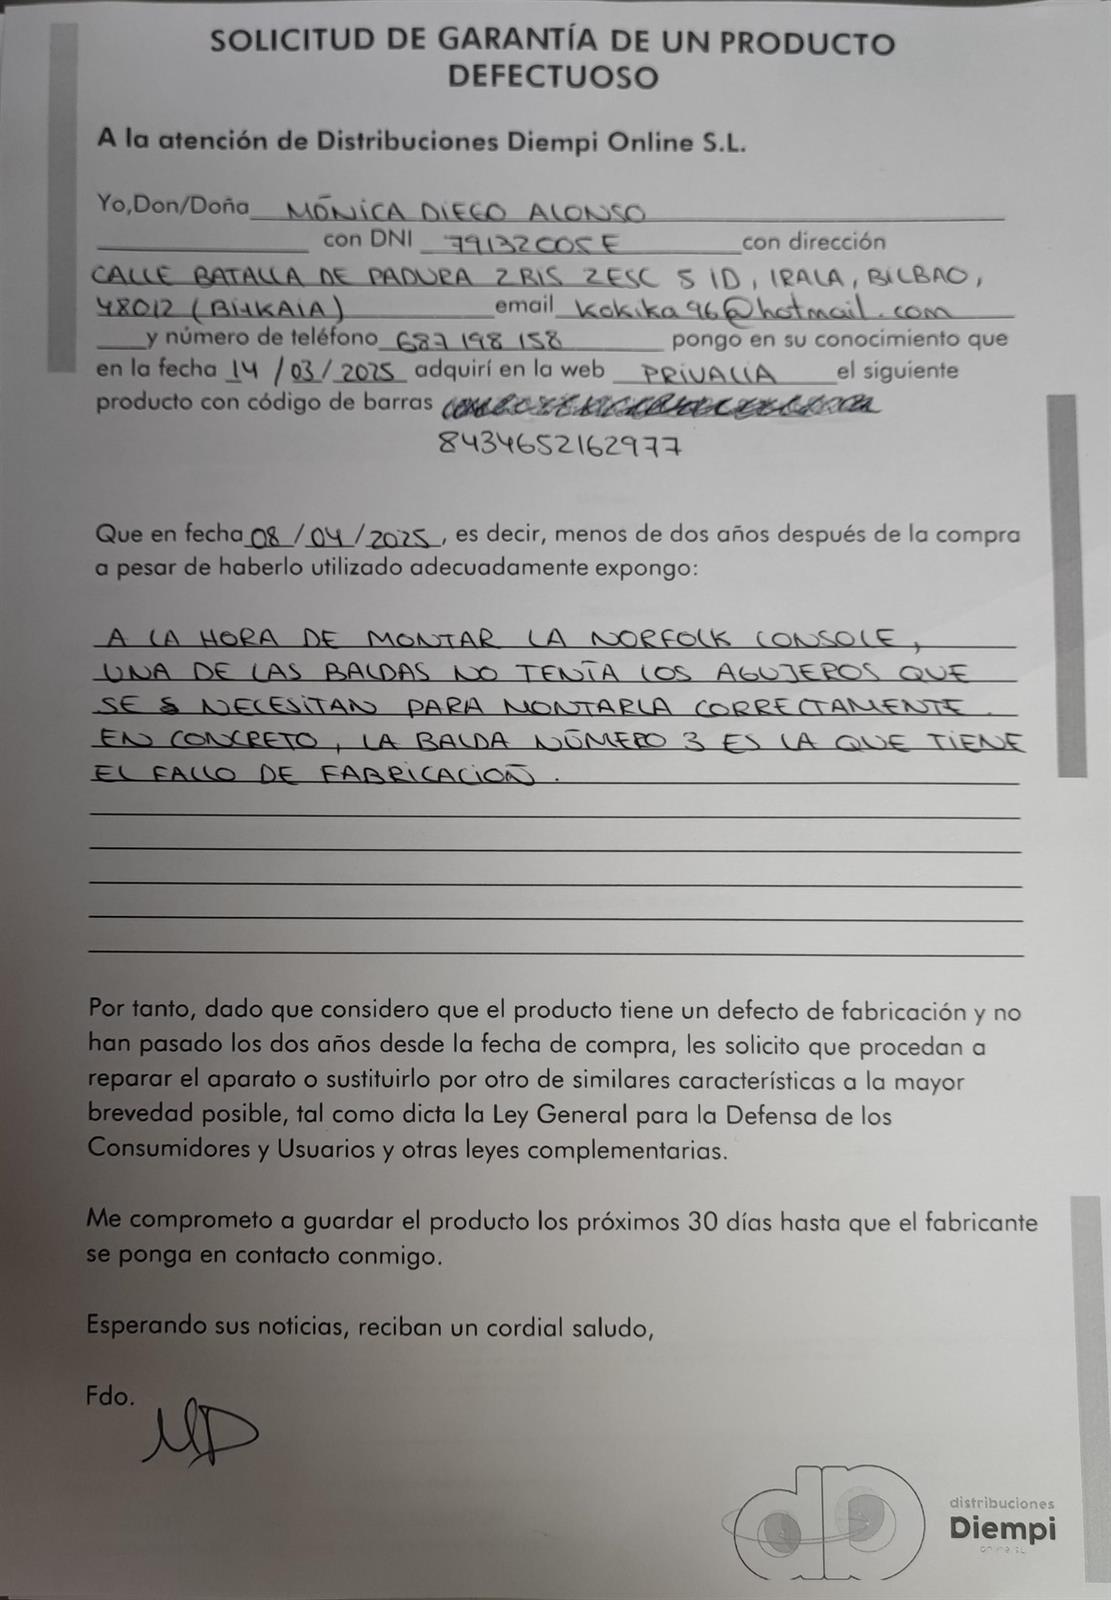 SOLICITUD DE GARANTÍA DE UN PRODUCTO
DEFECTUOSO
A la atención de Distribuciones Diempi Online S.L.
Yo,Don/Doña MÓNICA DIEGO ALONSO
con DNI 79132005E con dirección
CALLE BATALLA DE PADURA 2 BIS 2ESC 5 ID, IRALA, BILBAO,
48012 (BIZKAIA) email kokika96@hotmail.com
y número de teléfono 687 198 158 pongo en su conocimiento que
en la fecha 14 / 03 / 2025 adquirí en la web PRIVALIA el siguiente
producto con código de barras
8434652162977
Que en fecha 08 / 04 / 2025, es decir, menos de dos años después de la compra
a pesar de haberlo utilizado adecuadamente expongo:
A LA HORA DE MONTAR LA NORFOLK CONSOLE,
UNA DE LAS BALDAS NO TENÍA LOS AGUJEROS QUE
SE NECESITAN PARA MONTARLA CORRECTAMENTE.
EN CONCRETO, LA BALDA NÚMERO 3 ES LA QUE TIENE
EL FALLO DE FABRICACIÓN.
Por tanto, dado que considero que el producto tiene un defecto de fabricación y no
han pasado los dos años desde la fecha de compra, les solicito que procedan a
reparar el aparato o sustituirlo por otro de similares características a la mayor
brevedad posible, tal como dicta la Ley General para la Defensa de los
Consumidores y Usuarios y otras leyes complementarias.
Me comprometo a guardar el producto los próximos 30 días hasta que el fabricante
se ponga en contacto conmigo.
Esperando sus noticias, reciban un cordial saludo,
Fdo.
MD
distribuciones
Diempi